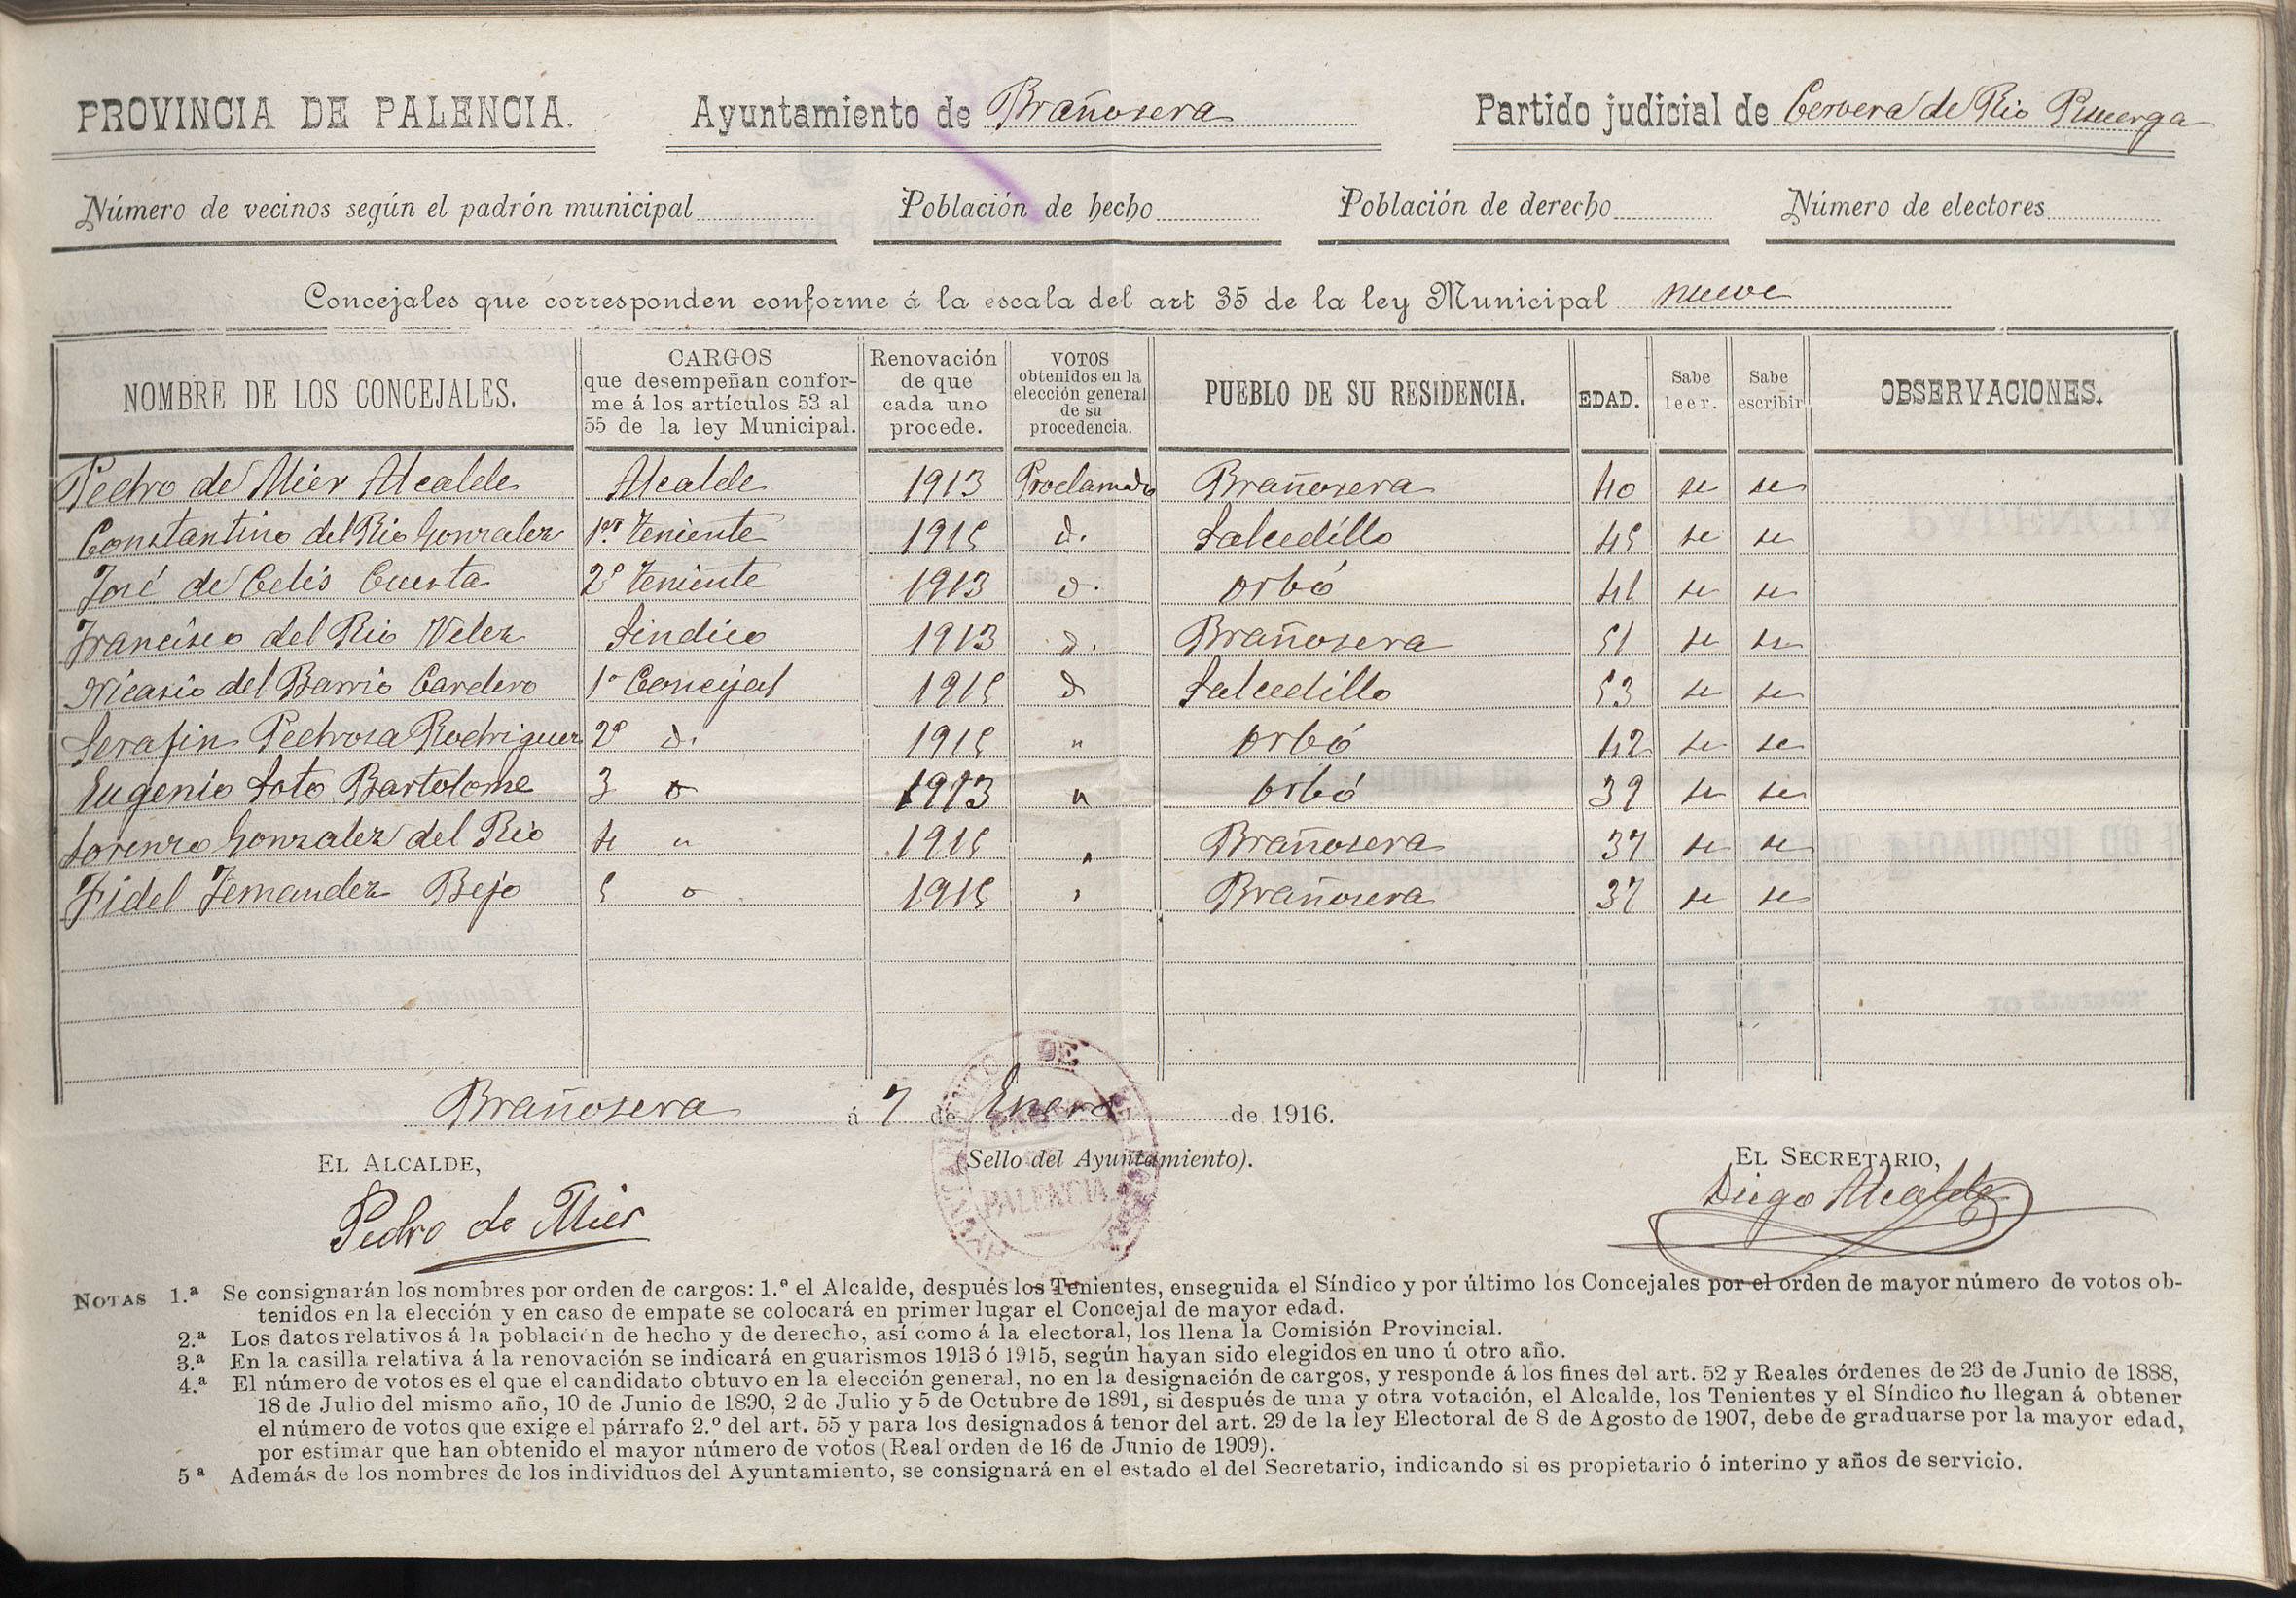 PROVINCIA DE PALENCIA. Ayuntamiento de Brañosera Partido judicial de Cervera de Rio Pisuerga
Número de vecinos según el padrón municipal Población de hecho Población de derecho Número de electores
Concejales que corresponden conforme á la escala del art 35 de la ley Municipal nueve
NOMBRE DE LOS CONCEJALES. CARGOS que desempeñan conforme á los artículos 53 al 55 de la ley Municipal. Renovación de que cada uno procede. VOTOS obtenidos en la elección general de su procedencia. PUEBLO DE SU RESIDENCIA. EDAD. Sabe leer. Sabe escribir OBSERVACIONES.
Pedro de Mier Alcalde Alcalde 1913 Proclamado Brañosera 40 si si
Constantino del Rio Gonzalez 1er Teniente 1915 d. Salcedillo 45 si si
José de Celis Cuesta 2º Teniente 1913 d. Orbó 41 si si
Francisco del Rio Velez Sindico 1913 d. Brañosera 51 si si
Nicasio del Barrio Cardero 1º Concejal 1915 d Salcedillo 53 si si
Serafin Pedrosa Rodriguez 2º d. 1915 " Orbó 42 si si
Eugenio Soto Bartolome 3 o 1913 " Orbó 39 si si
Lorenzo Gonzalez del Rio 4 " 1915 " Brañosera 37 si si
Fidel Fernandez Bejo 5 o 1915 " Brañosera 37 si si
Brañosera á 7 de Enero de 1916.
EL ALCALDE, (Sello del Ayuntamiento). EL SECRETARIO,
Pedro de Mier Diego Alcalde
AYUNTAMIENTO DE BRAÑOSERA
PALENCIA
NOTAS 1.ª Se consignarán los nombres por orden de cargos: 1.º el Alcalde, después los Tenientes, enseguida el Síndico y por último los Concejales por el orden de mayor número de votos ob-
tenidos en la elección y en caso de empate se colocará en primer lugar el Concejal de mayor edad.
2.ª Los datos relativos á la población de hecho y de derecho, así como á la electoral, los llena la Comisión Provincial.
3.ª En la casilla relativa á la renovación se indicará en guarismos 1913 ó 1915, según hayan sido elegidos en uno ú otro año.
4.ª El número de votos es el que el candidato obtuvo en la elección general, no en la designación de cargos, y responde á los fines del art. 52 y Reales órdenes de 23 de Junio de 1888,
18 de Julio del mismo año, 10 de Junio de 1890, 2 de Julio y 5 de Octubre de 1891, si después de una y otra votación, el Alcalde, los Tenientes y el Síndico no llegan á obtener
el número de votos que exige el párrafo 2.º del art. 55 y para los designados á tenor del art. 29 de la ley Electoral de 8 de Agosto de 1907, debe de graduarse por la mayor edad,
por estimar que han obtenido el mayor número de votos (Real orden de 16 de Junio de 1909).
5ª Además de los nombres de los individuos del Ayuntamiento, se consignará en el estado el del Secretario, indicando si es propietario ó interino y años de servicio.